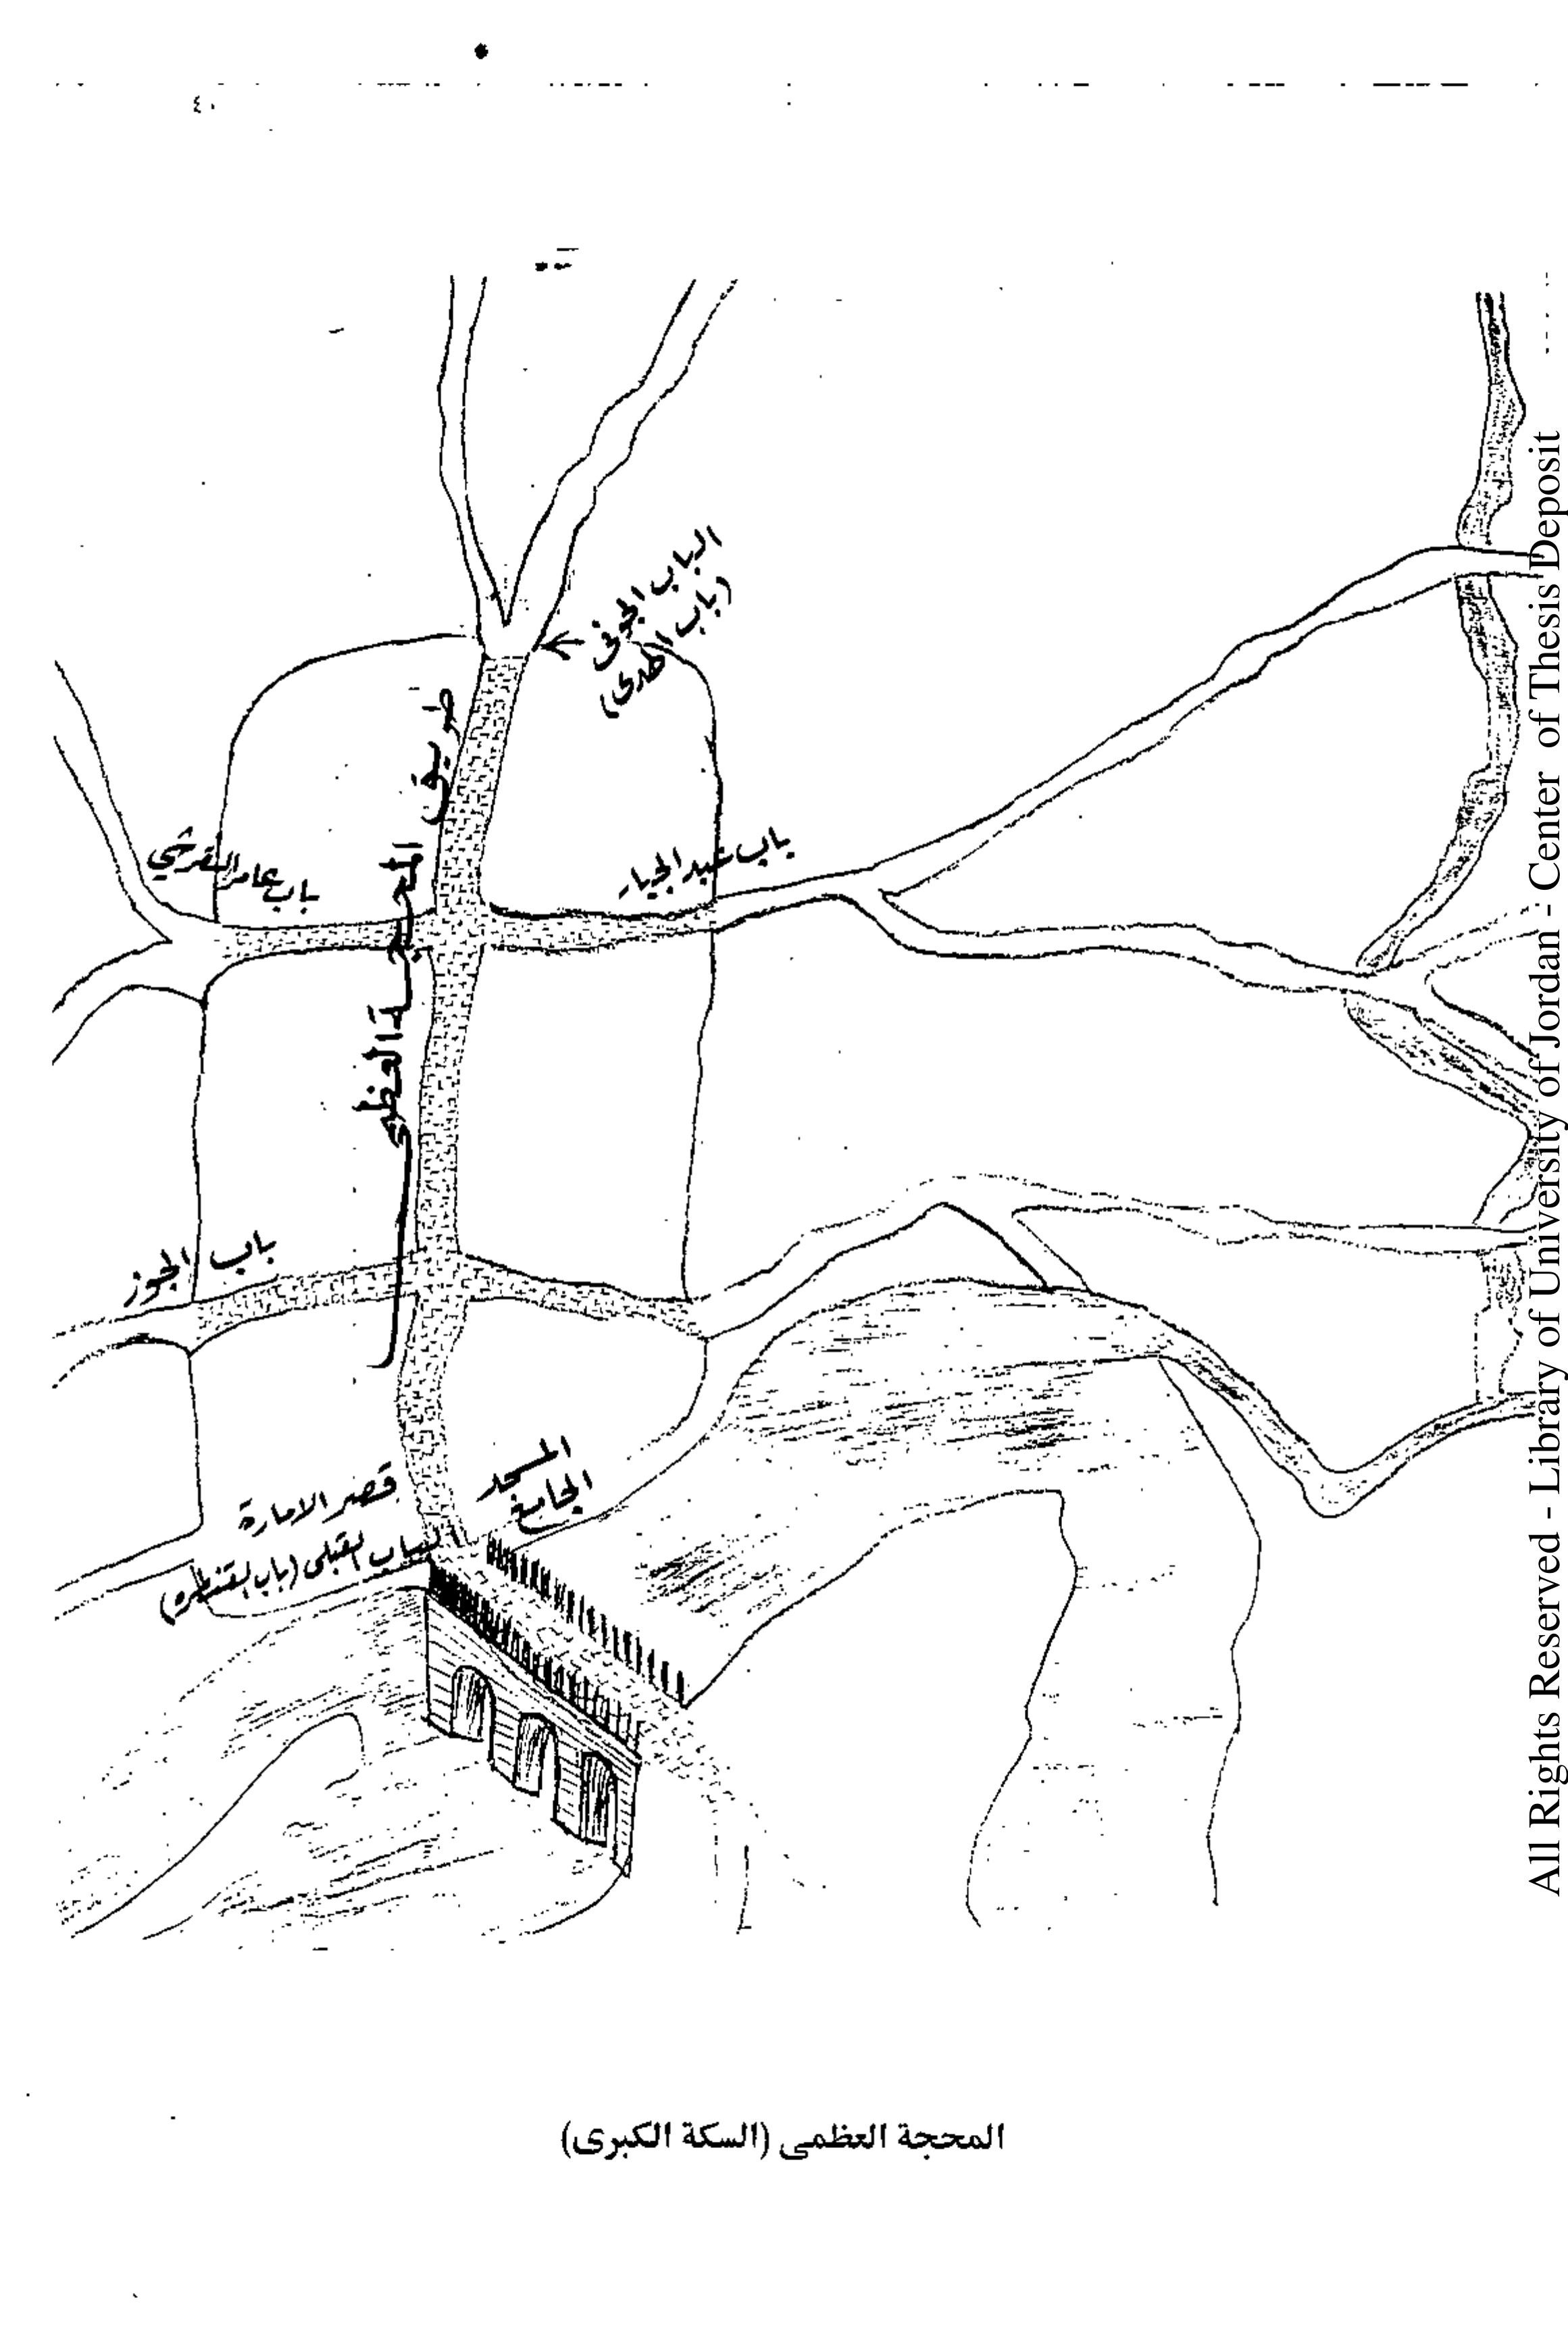 ٤٠
الباب الجوفى
(باب الهدى)
طريق المحجة العظمى
باب عامر القرشي
باب عبد الجبار
باب الجوز
المسجد
الجامع
قصر الامارة
الباب القبلى (باب القنطره)
المحجة العظمى (السكة الكبرى)
All Rights Reserved - Library of University of Jordan - Center of Thesis Deposit